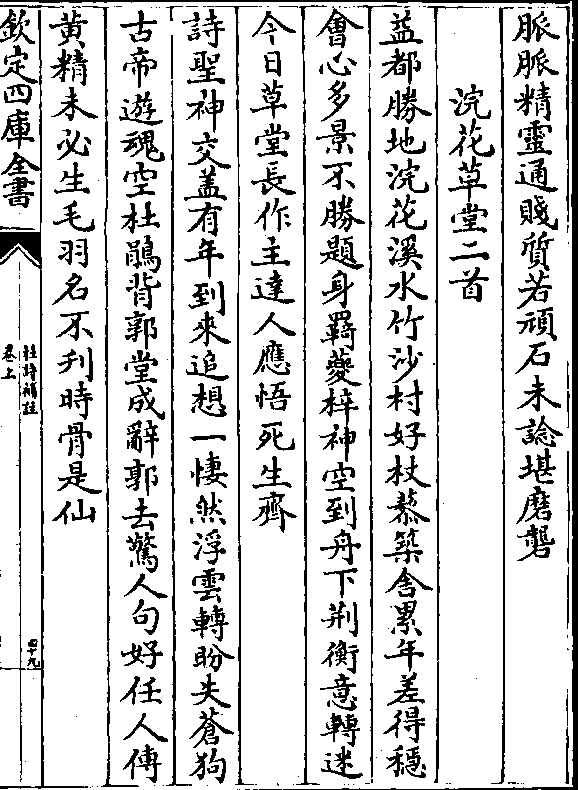 脈脈精靈通賤質若頑石未諗堪磨礱
浣花草堂二首
益都勝地浣花溪水竹沙村好杖藜築舍累年差得穩
會心多景不勝題身羇夔梓神空到舟下荆衡意轉迷
今日草堂長作主達人應悟死生齊
詩聖神交葢有年到來追想一悽然浮雲轉盼失蒼狗
古帝遊魂空杜鵑背郭堂成辭郭去驚人句好任人傳
黄精未必生毛羽名不刋時骨是仙
欽定四庫全書
卷上
四十九